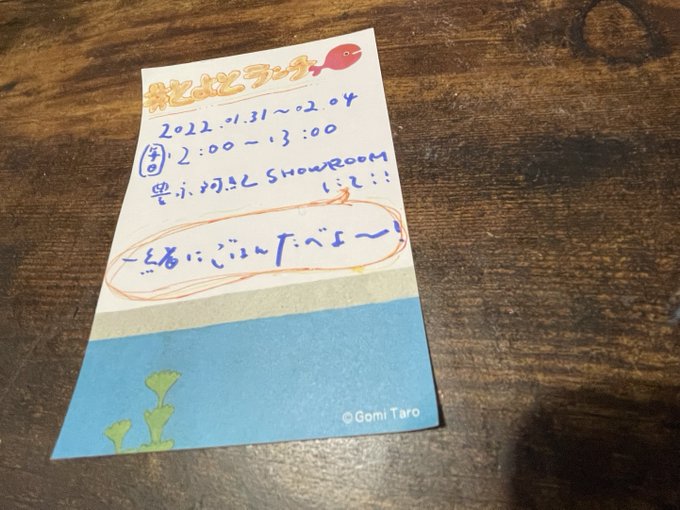 #とよとランチ
2022.01.31〜02.04
毎日 12:00〜13:00
豊永阿紀 SHOWROOM
にて!!
一緒にごはんたべよ〜!
©Gomi Taro